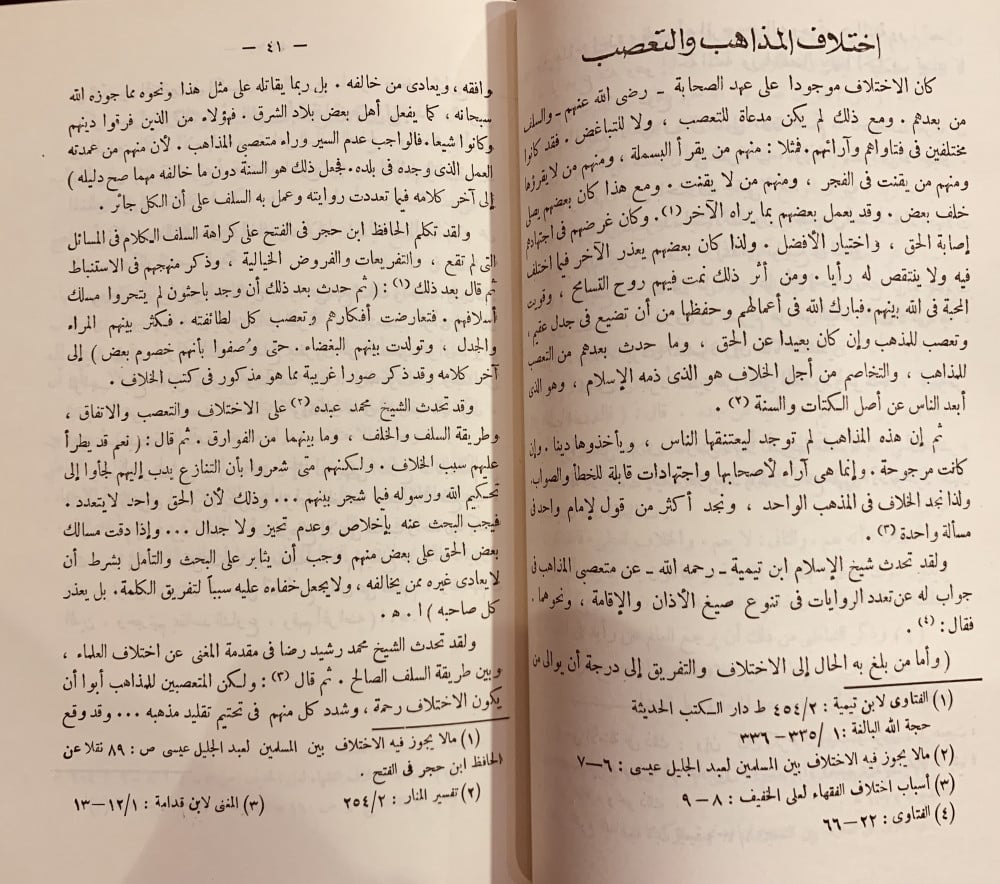 اختلاف المذاهب والتعصب
كان الاختلاف موجودا على عهد الصحابة – رضى الله عنهم – والسلف
من بعدهم . ومع ذلك لم يكن مدعاة للتعصب ، ولا للتباغض . فقد كانوا
مختلفين فى فتاواهم وآرائهم . فمثلا : منهم من يقرأ البسملة ، ومنهم من لا يقرؤها
ومنهم من يقنت فى الفجر ، ومنهم من لا يقنت . ومع هذا كان بعضهم يصلى
خلف بعض . وقد يعمل بعضهم بما يراه الآخر (١) . وكان غرضهم فى اجتهادهم
إصابة الحق ، واختيار الأفضل . ولذا كان بعضهم يعذر الآخر فيما اختلف
فيه ولا ينتقص له رأيا . ومن أثر ذلك نمت فيهم روح التسامح ، وقويت
المحبة فى الله بينهم . فبارك الله فى أعمالهم وحفظها من أن تضيع فى جدل عقيم ،
وتعصب للمذهب وإن كان بعيدا عن الحق ، وما حدث بعدهم من التعصب
للمذاهب ، والتخاصم من أجل الخلاف هو الذى ذمه الإسلام ، وهو الذى
أبعد الناس عن أصل الكتات والسنة (٢) .
ثم إن هذه المذاهب لم توجد ليعتنقها الناس ، ويأخذوها دينا . وإن
كانت مرجوحة . وإنما هى آراء لأصحابها واجتهادات قابلة للخطأ والصواب .
ولذا نجد الخلاف فى المذهب الواحد ، ونجد أكثر من قول لإمام واحد فى
مسألة واحدة (٣) .
ولقد تحدث شيخ الإسلام ابن تيمية – رحمه الله – عن متعصبى المذاهب فى
جواب له عن تعدد الروايات فى تنوع صيغ الأذان والإقامة ، ونحوهما .
فقال : (٤) .
( وأما من بلغ به الحال إلى الاختلاف والتفريق إلى درجة أن يوالى من
(١) الفتاوى لابن تيمية : ٤٥٤/٢ ط دار الكتب الحديثة
حجة الله البالغة : ١ /٣٣٥ – ٣٣٦
(٢) مالا يجوز فيه الاختلاف بين المسلمين لعبد الجليل عيسى : ٦ – ٧
(٣) أسباب اختلاف الفقهاء لعلى الخفيف : ٨ – ٩
(٤) الفتاوى : ٢٢ – ٦٦
– ٤١ –
وافقه ، ويعادى من خالفه . بل ربما يقاتله على مثل هذا ونحوه مما جوزه الله
سبحانه ، كما يفعل أهل بعض بلاد الشرق . فهؤلاء من الذين فرقوا دينهم
وكانوا شيعا . فالواجب عدم السير وراء متعصبى المذاهب . لأن منهم من عمدته
العمل الذى وجده فى بلده . فجعل ذلك هو السنة دون ما خالفه مهما صح دليله )
إلى آخر كلامه فيما تعددت روايته وعمل به السلف على أن الكل جائز .
ولقد تكلم الحافظ ابن حجر فى الفتح على كراهة السلف الكلام فى المسائل
التى لم تقع ، والتفريعات والفروض الخيالية ، وذكر منهجهم فى الاستنباط
ثم قال بعد ذلك (١) : ( ثم حدث بعد ذلك أن وجد باحثون لم يتحروا مسلك
أسلافهم . فتعارضت أفكارهم وتعصب كل لطائفته . فكثر بينهم المراء
والجدل ، وتولدت بينهم البغضاء . حتى وُصفوا بأنهم خصوم بعض ) إلى
آخر كلامه وقد ذكر صورا غريبة مما هو مذكور فى كتب الخلاف .
وقد تحدث الشيخ محمد عبده (٢) على الاختلاف والتعصب والاتفاق ،
وطريقة السلف والخلف ، وما بينهما من الفوارق . ثم قال : ( نعم قد يطرأ
عليهم سبب الخلاف . ولكنهم متى شعروا بأن التنازع يدب إليهم لجأوا إلى
تحكيم الله ورسوله فيما شجر بينهم ... وذلك لأن الحق واحد لا يتعدد .
فيجب البحث عنه بإخلاص وعدم تحيز ولا جدال ... وإذا دقت مسالك
بعض الحق على بعض منهم وجب أن يثابر على البحث والتأمل بشرط أن
لا يعادى غيره ممن يخالفه ، ولا يجعل خفاءه عليه سبباً لتفريق الكلمة . بل يعذر
كل صاحبه ) ا . ه .
ولقد تحدث الشيخ محمد رشيد رضا فى مقدمة المغنى عن اختلاف العلماء ،
وبين طريقة السلف الصالح . ثم قال (٣) : ولكن المتعصبين للمذاهب أبوا أن
يكون الاختلاف رحمة ، وشدد كل منهم فى تحتيم تقليد مذهبه ... وقد وقع
(١) مالا يجوز فيه الاختلاف بين المسلمين لعبد الجليل عيسى ص : ٨٩ نقلا عن
الحافظ ابن حجر فى الفتح .
(٢) تفسير المنار : ٢٥٤/٢ (٣) المغنى لابن قدامة : ١٢/١ – ١٣